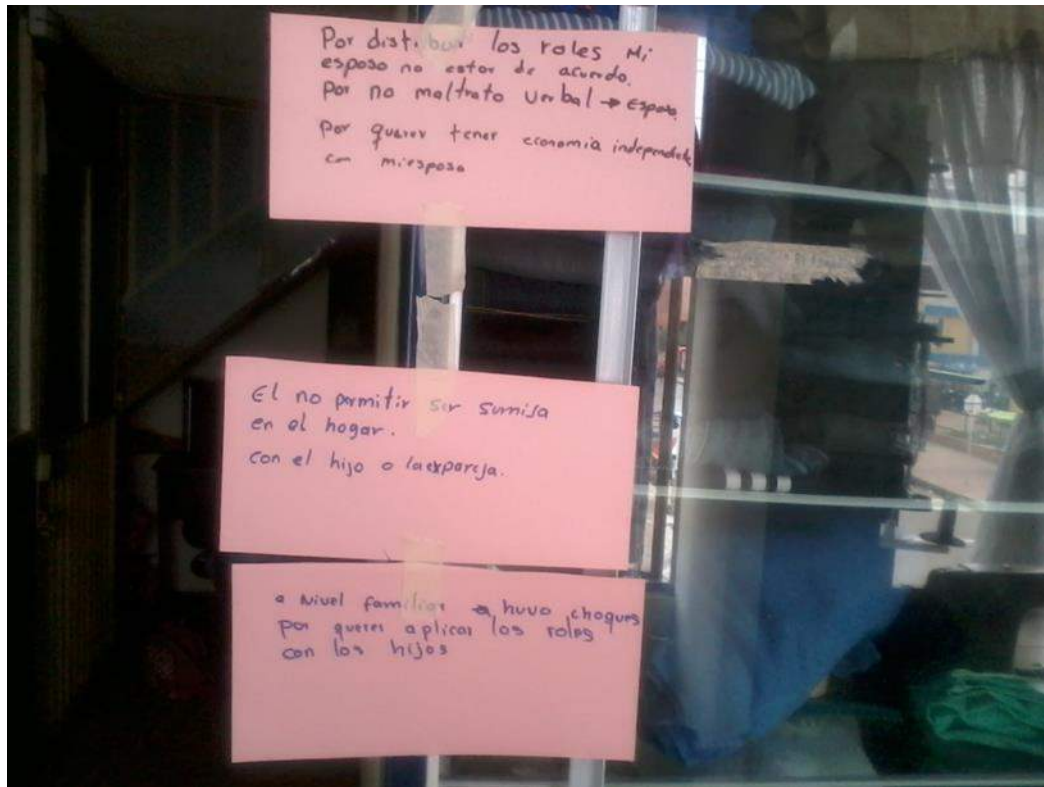 Por distribuir los roles Mi
esposo no estar de acuerdo.
Por no maltrato verbal → Esposo
Por querer tener economia independiente
con mi esposo
El no permitir ser sumisa
en el hogar.
con el hijo o la expareja.
a Nivel familiar → huvo choques
por querer aplicar los roles
con los hijos